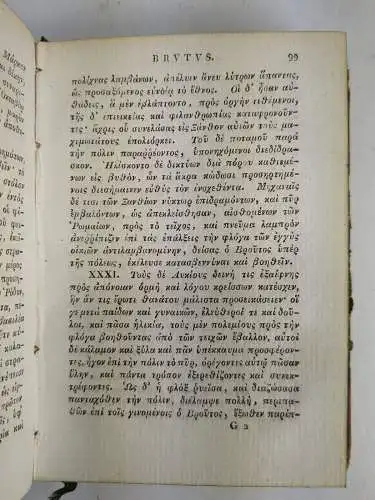 BRVTVS. 99
πολίχνας λαμβάνων, ἀπέλυεν ἄνευ λύτρων ἅπαντας,
ὡς προσαξόμενος εὐνοίᾳ τὸ ἔθνος. Οἱ δ' ἦσαν αὐ-
θάδεις, ἃ μὲν ἐβλάπτοντο, πρὸς ὀργὴν τιθέμενοι,
τῆς δ' ἐπιεικείας καὶ φιλανθρωπίας καταφρονοῦν-
τες· ἄχρις οὗ συνελάσας εἰς Ξάνθον αὐτῶν τοὺς μα-
χιμωτάτους ἐπολιόρκει. Τοῦ δὲ ποταμοῦ παρὰ
τὴν πόλιν παραῤῥέοντος, ὑπονηχόμενοι διεδίδρα-
σκον. Ἡλίσκοντο δὲ δικτύων διὰ πόρου καθιεμέ-
νων εἰς βυθὸν, ὧν τὰ ἄκρα κώδωσι προσηρτημέ-
νοις διεσήμαινεν εὐθὺς τὸν ἐνσχεθέντα. Μηχαναῖς
δέ τισι τῶν Ξανθίων νύκτωρ ἐπιδραμόντων, καὶ πῦρ
ἐμβαλόντων, ὡς ἀπεκλείσθησαν, αἰσθομένων τῶν
Ῥωμαίων, πρὸς τὸ τεῖχος, καὶ πνεῦμα λαμπρὸν
ἀνεῤῥίπιζεν ἐπὶ τὰς ἐπάλξεις τὴν φλόγα τῶν ἐγγὺς
οἰκιῶν ἀντιλαμβανομένην, δείσας ὁ Βροῦτος ὑπὲρ
τῆς πόλεως, ἐκέλευσε κατασβεννύναι καὶ βοηθεῖν.
XXXI. Τοὺς δὲ Λυκίους δεινή τις ἐξαίφνης
πρὸς ἀπόνοιαν ὁρμὴ καὶ λόγου κρείσσων κατέσχεν,
ἣν ἄν τις ἔρωτι θανάτου μάλιστα προσεικάσειεν· οἵ
γε μετὰ παίδων καὶ γυναικῶν, ἐλεύθεροί τε καὶ δοῦ-
λοι, καὶ πᾶσα ἡλικία, τοὺς μὲν πολεμίους πρὸς τὴν
φλόγα βοηθοῦντας ἀπὸ τῶν τειχῶν ἔβαλλον, αὐτοὶ
δὲ κάλαμον καὶ ξύλα καὶ πᾶν ὑπέκκαυμα προσφέρον-
τες, ἦγον ἐπὶ τὴν πόλιν τὸ πῦρ, ὀρέγοντες αὐτῷ πᾶσαν
ὕλην, καὶ πάντα τρόπον ἐξερεθίζοντες καὶ συνεκ-
τρέφοντες. Ὡς δ' ἡ φλὸξ ῥυεῖσα, καὶ διαζώσασα
πανταχόθεν τὴν πόλιν, διέλαμψε πολλὴ, περιπα-
θῶν ἐπὶ τοῖς γινομένοις ὁ Βροῦτος, ἔξωθεν παρίπ-
G 2